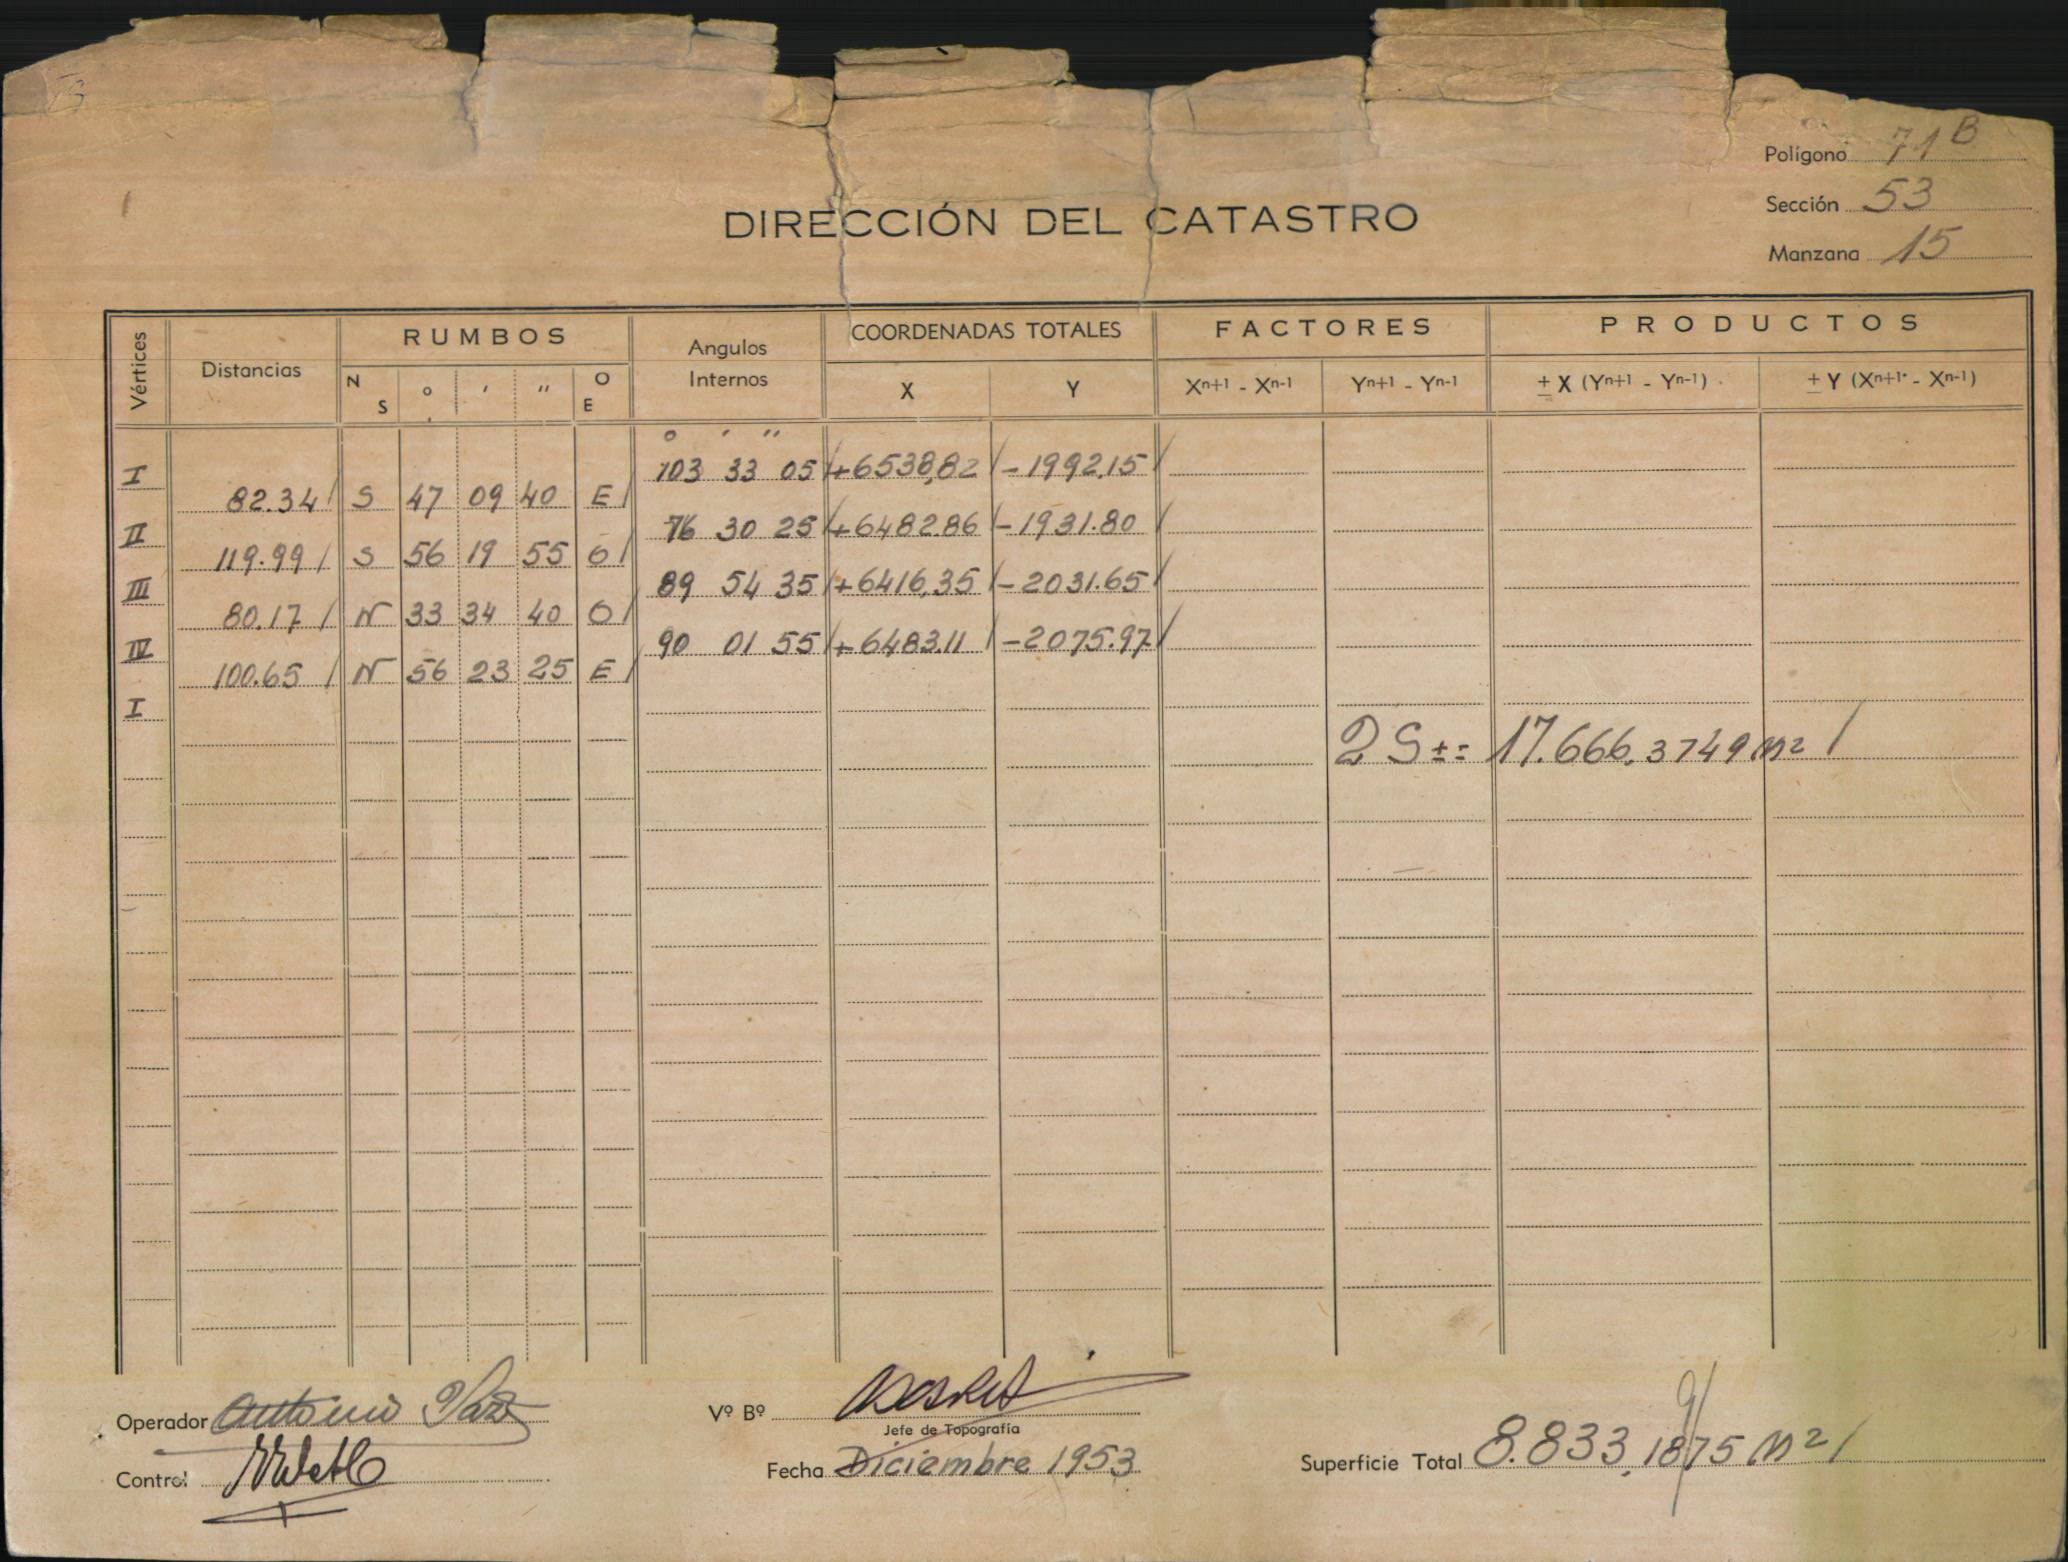 Polígono 71B
DIRECCIÓN DEL CATASTRO
Sección 53
Manzana 15
Vértices Distancias RUMBOS Angulos Internos COORDENADAS TOTALES FACTORES PRODUCTOS
N S ° ' " O E X Y Xn+1 - Xn-1 Yn+1 - Yn-1 ± X (Yn+1 - Yn-1) ± Y (Xn+1 - Xn-1)
° ' "
I 103 33 05 +6538,82 -1992.15
82.34 S 47 09 40 E
II 76 30 25 +6482.86 -1931.80
119.99 S 56 19 55 O
III 89 54 35 +6416,35 -2031.65
80.17 N 33 34 40 O
IV 90 01 55 +6483.11 -2075.97
100.65 N 56 23 25 E
I
2 S ±= 17.666,3749 m2
Operador Antonio
Vº Bº
Jefe de Topografía
Control
Fecha Diciembre 1953
Superficie Total 8.833,1875 m2